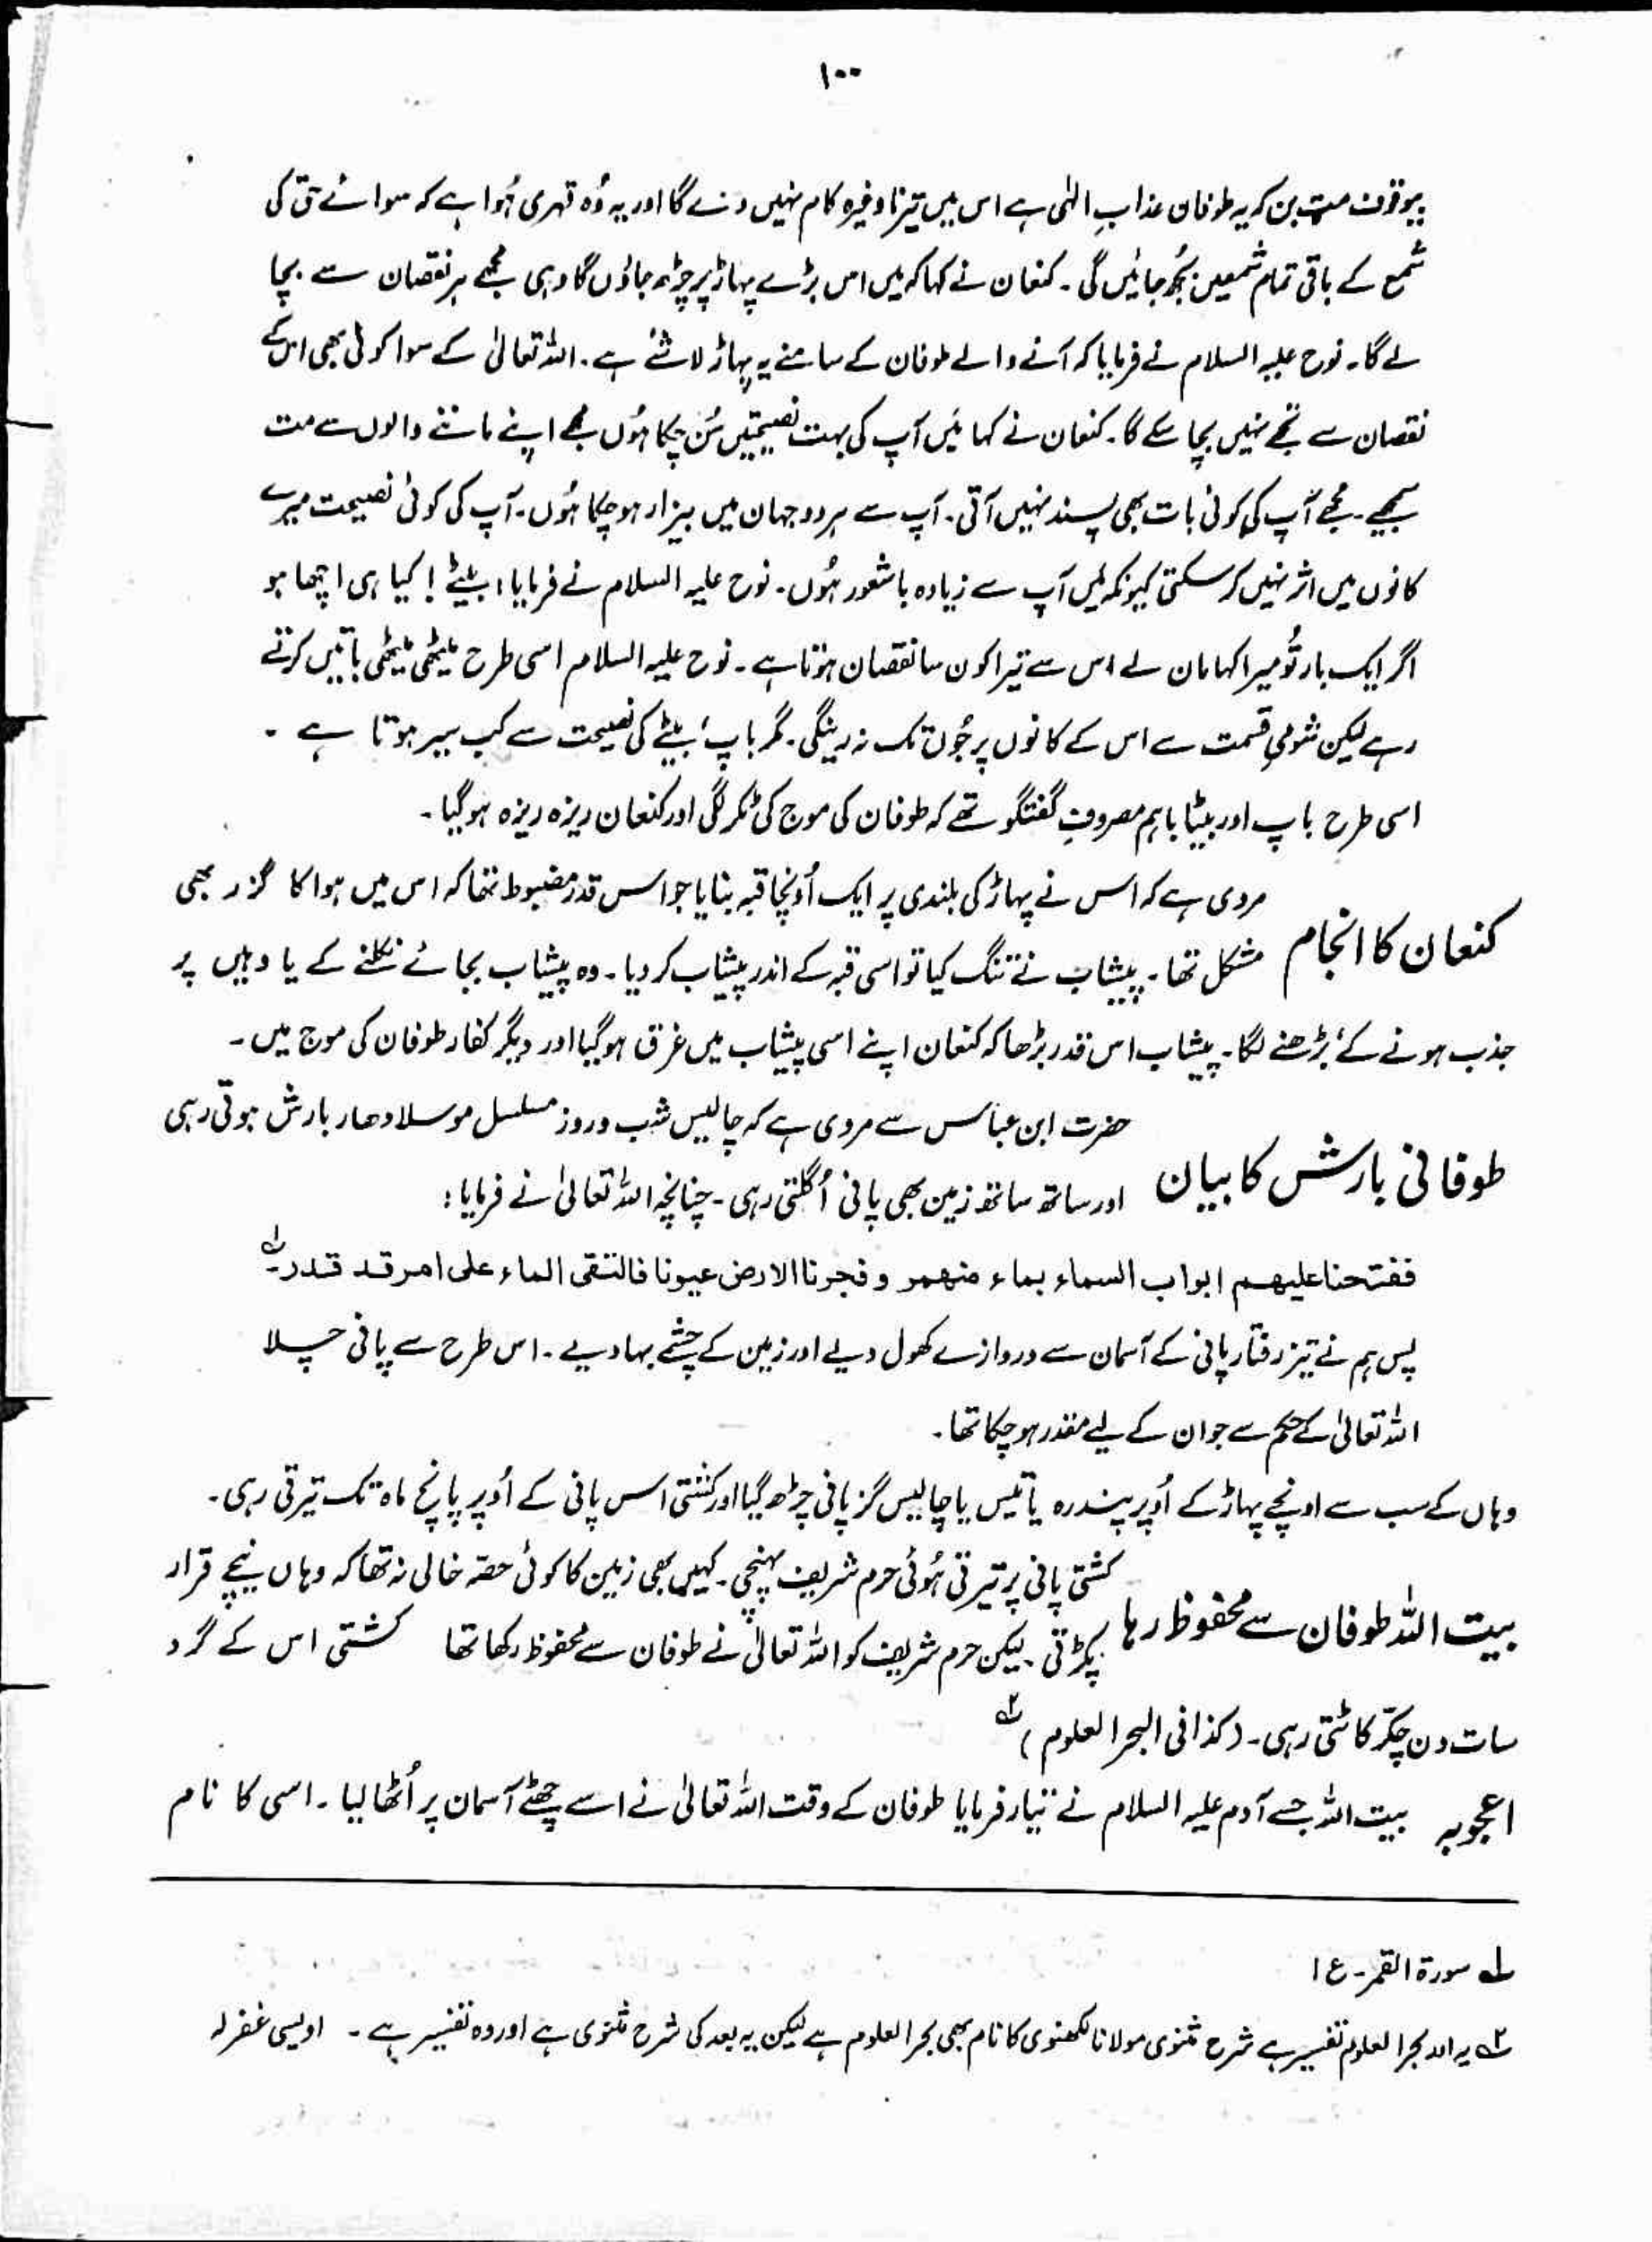 ۱۰۰
بیوقوف مت بن کر یہ طوفان عذابِ الٰہی ہے اس میں تیرنا وغیرہ کام نہیں دے گا اور یہ وُہ قہری ہُوا ہے کہ سوائے حق کی
شمع کے باقی تمام شمعیں بُجھ جائیں گی ۔ کنعان نے کہا کہ میں اس بڑے پہاڑ پر چڑھ جاؤں گا وہی مجھے ہر نقصان سے بچا
لے گا۔ نوح علیہ السلام نے فرمایا کہ آنے والے طوفان کے سامنے یہ پہاڑ لاشئے ہے ۔ اللہ تعالیٰ کے سوا کوئی بھی اس کے
نقصان سے تجھے نہیں بچا سکے گا ۔ کنعان نے کہا میں آپ کی بہت نصیحتیں سُن چکا ہُوں مجھے اپنے ماننے والوں سے مت
سمجھے ۔ مجھے آپ کی کوئی بات بھی پسند نہیں آتی ۔ آپ سے ہر دو جہان میں بیزار ہو چکا ہُوں ۔ آپ کی کوئی نصیحت میرے
کانوں میں اثر نہیں کر سکتی کیونکہ میں آپ سے زیادہ باشعور ہُوں ۔ نوح علیہ السلام نے فرمایا، بیٹے ! کیا ہی اچھا ہو
اگر ایک بار تُو میرا کہا مان لے اس سے تیرا کون سا نقصان ہوتا ہے ۔ نوح علیہ السلام اسی طرح میٹھی میٹھی باتیں کرتے
رہے لیکن شومیِ قسمت سے اس کے کانوں پر جُوں تک نہ رینگی ۔ مگر باپ، بیٹے کی نصیحت سے کب سیر ہوتا ہے ۔
اسی طرح باپ اور بیٹا باہم مصروفِ گفتگو تھے کہ طوفان کی موج کی ٹکر لگی اور کنعان ریزہ ریزہ ہو گیا ۔
کنعان کا انجام مروی ہے کہ اس نے پہاڑ کی بلندی پر ایک اُونچا قبہ بنایا جو اس قدر مضبوط تھا کہ اس میں ہوا کا گزر بھی
مشکل تھا ۔ پیشاب نے تنگ کیا تو اسی قبہ کے اندر پیشاب کر دیا ۔ وہ پیشاب بجائے نکلنے کے یا وہیں پر
جذب ہونے کے بڑھنے لگا ۔ پیشاب اس قدر بڑھا کہ کنعان اپنے اسی پیشاب میں غرق ہو گیا اور دیگر کفار طوفان کی موج میں ۔
طوفانی بارش کا بیان حضرت ابن عباس سے مروی ہے کہ چالیس شب و روز مسلسل موسلا دھار بارش ہوتی رہی
اور ساتھ ساتھ زمین بھی پانی اُگلتی رہی ۔ چنانچہ اللہ تعالیٰ نے فرمایا :
ففتحنا علیھم ابواب السماء بماء منھمر و فجرنا الارض عیونا فالتقی الماء علی امر قد قدر ۔ لے
پس ہم نے تیز رفتار پانی کے آسمان سے دروازے کھول دیے اور زمین کے چشمے بہا دیے ۔ اس طرح سے پانی چلا
اللہ تعالیٰ کے حکم سے جو ان کے لیے مقدر ہو چکا تھا ۔
وہاں کے سب سے اونچے پہاڑ کے اُوپر پندرہ یا تیس یا چالیس گز پانی چڑھ گیا اور کشتی اس پانی کے اُوپر پانچ ماہ تک تیرتی رہی ۔
بیت اللہ طوفان سے محفوظ رہا کشتی پانی پر تیرتی ہُوئی حرم شریف پہنچی ۔ کہیں بھی زمین کا کوئی حصّہ خالی نہ تھا کہ وہاں نیچے قرار
پکڑتی لیکن حرم شریف کو اللہ تعالیٰ نے طوفان سے محفوظ رکھا تھا کشتی اس کے گرد
سات دن چکر کاٹتی رہی ۔ (کذا فی البحر العلوم) ۲؎
اعجوبہ بیت اللہ جسے آدم علیہ السلام نے تیار فرمایا طوفان کے وقت اللہ تعالیٰ نے اسے چھٹے آسمان پر اُٹھا لیا ۔ اسی کا نام
۱؎ سورۃ القمر ۔ ع ۱
۲؎ یہ اور بحر العلوم تفسیر ہے شرح مثنوی مولانا لکھنوی کا نام بھی بحر العلوم ہے لیکن یہ بعد کی شرح مثنوی ہے اور وہ تفسیر ہے ۔ اویسی غفرلہ